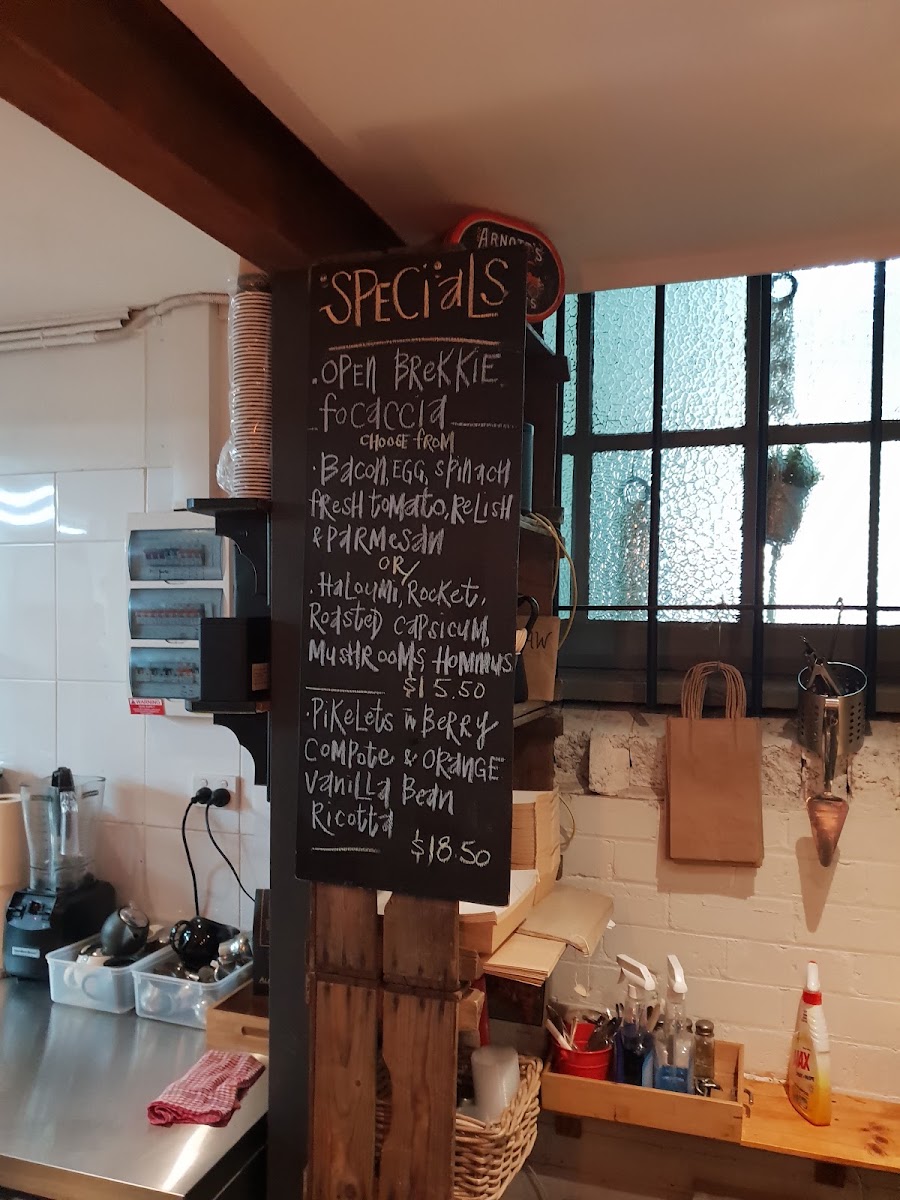 ARNOTT'S
SPECIALS
.OPEN BREKKIE
focaccia
CHOOSE fROM
·Bacon, EGG, Spinach
fresh tomato, Relish
& parmesan
OR/
·Haloumi, Rocket,
Roasted capsicum,
Mushrooms, Hommus
$15.50
·Pikelets in Berry
Compote & ORANGE
Vanilla Bean
Ricotta
$18.50
WARNING